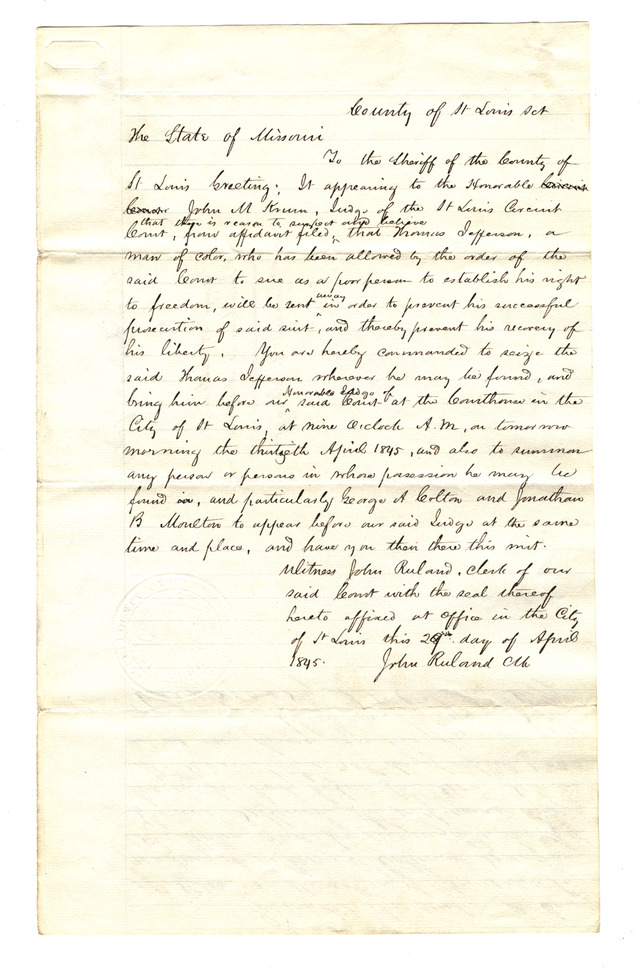 County of St Louis Sct
The State of Missouri
To the Sheriff of the County of
St Louis Greeting; It appearing to the Honorable Circuit
Court John M Krum, Judge of the St Louis Circuit
that there is reason to suspect and believe
Court, from affidavit filed, that Thomas Jefferson, a
man of color, who has been allowed by the order of the
said Court to sue as a poor person to establish his right
away
to freedom, will be sent in order to prevent his successful
prosecution of said suit, and thereby prevent his recovery of
his liberty. You are hereby commanded to seize the
said Thomas Jefferson wherever he may be found, and
Honorable Judge of
bring him before our said Court at the Courthouse in the
City of St Louis, at nine Oclock A.M, on tomorrow
morning the thirtieth April 1845, and also to summon
any person or persons in whose possession he may be
found in, and particularly George A Colton and Jonathan
B Moulton to appear before our said Judge at the same
time and place, and have you then there this writ.
Witness John Ruland, Clerk of our
said Court with the seal thereof
hereto affixed at office in the City
of St Louis this 29th day of April
1845. John Ruland Clk